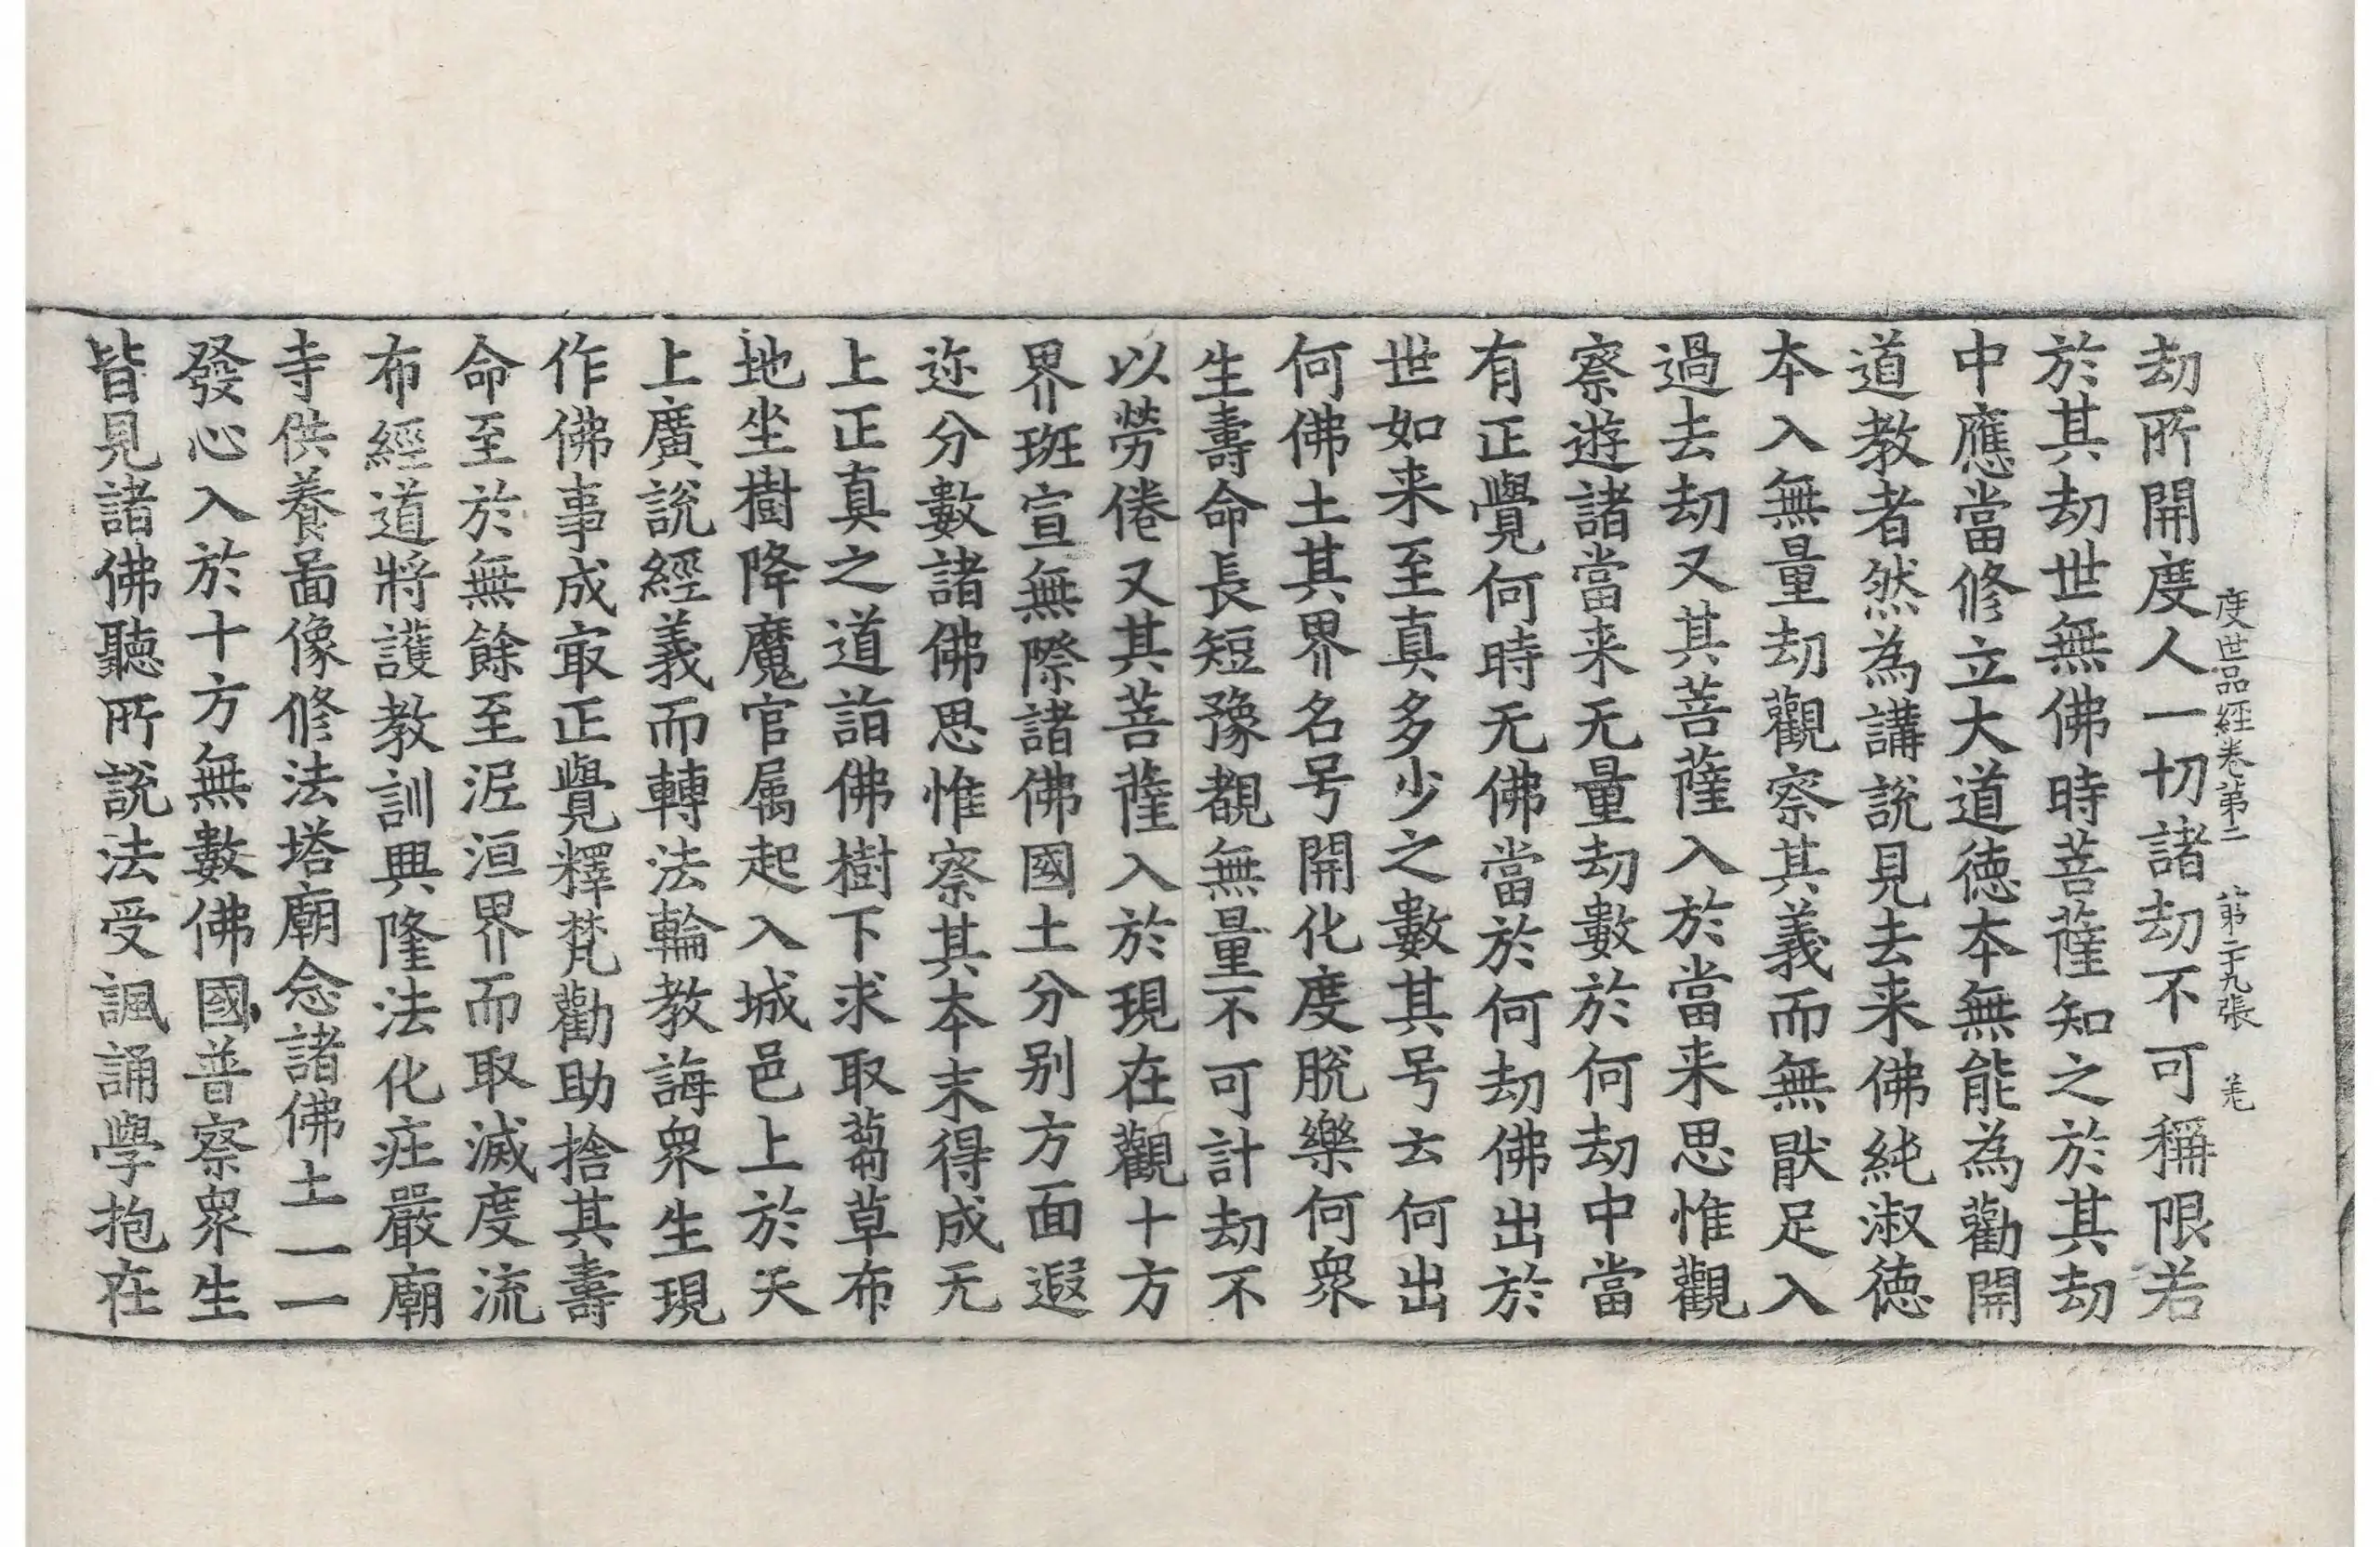 度世品經卷第二 第二十九張 羌
劫所開度人一切諸劫不可稱限若
於其劫世無佛時菩薩知之於其劫
中應當修立大道德本無能為勸開
道教者然為講説見去来佛純淑德
本入無量劫觀察其義而無猒足入
過去劫又其菩薩入於當来思惟觀
察遊諸當来无量劫數於何劫中當
有正覺何時无佛當於何劫佛出於
世如来至真多少之數其号云何出
何佛土其界名号開化度脫樂何衆
生壽命長短豫覩無量不可計劫不
以勞倦又其菩薩入於現在觀十方
界班宣無際諸佛國土分别方面遐
迩分數諸佛思惟察其本末得成无
上正真之道詣佛樹下求取蒭草布
地坐樹降魔官属起入城邑上於天
上廣説經義而轉法輪教誨衆生現
作佛事成㝡正覺釋梵勸助捨其壽
命至於無餘至泥洹界而取滅度流
布經道將護教訓興隆法化庄嚴廟
寺供養啚像修法塔廟念諸佛土一一
發心入於十方無數佛國普察衆生
皆見諸佛聽所説法受諷誦學抱在